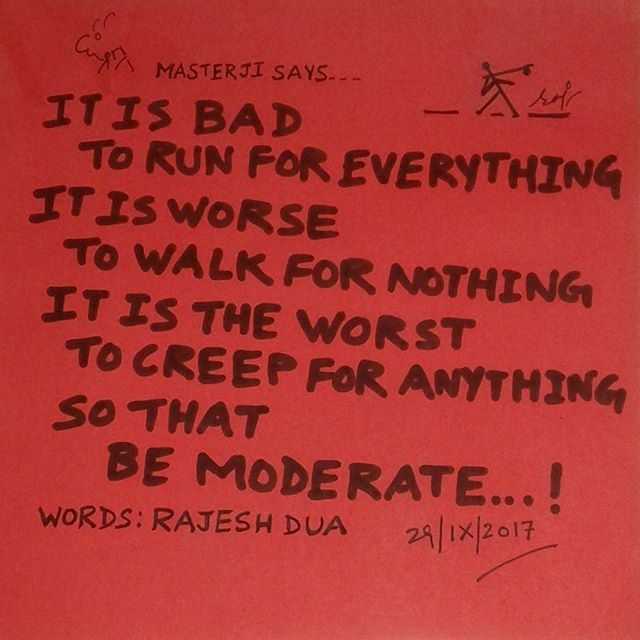 MASTERJI SAYS---
IT IS BAD
TO RUN FOR EVERYTHING
IT IS WORSE
TO WALK FOR NOTHING
IT IS THE WORST
TO CREEP FOR ANYTHING
SO THAT
BE MODERATE...!
WORDS: RAJESH DUA
29/IX/2017